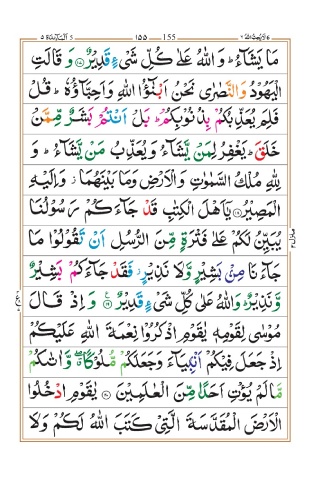 مَا يَشَآءُ ؕ وَ اللّٰهُ عَلٰى كُلِّ شَىْءٍ قَدِيْرٌ ﴿۱۷﴾ وَ قَالَتِ
الْيَهُوْدُ وَالنَّصٰرٰى نَحْنُ اَبْنٰٓؤُا اللّٰهِ وَاَحِبَّآؤُهٗ ؕ قُلْ
فَلِمَ يُعَذِّبُكُمْ بِذُنُوْبِكُمْ ؕ بَلْ اَنْتُمْ بَشَرٌ مِّمَّنْ
خَلَقَ ؕ يَغْفِرُ لِمَنْ يَّشَآءُ وَ يُعَذِّبُ مَنْ يَّشَآءُ ؕ وَ
لِلّٰهِ مُلْكُ السَّمٰوٰتِ وَ الْاَرْضِ وَمَا بَيْنَهُمَا ؗ وَاِلَيْهِ
الْمَصِيْرُ ﴿۱۸﴾ يٰۤاَهْلَ الْكِتٰبِ قَدْ جَآءَكُمْ رَسُوْلُنَا
يُبَيِّنُ لَكُمْ عَلٰى فَتْرَةٍ مِّنَ الرُّسُلِ اَنْ تَقُوْلُوْا مَا
جَآءَنَا مِنْۢ بَشِيْرٍ وَّلَا نَذِيْرٍ ؗ فَقَدْ جَآءَكُمْ بَشِيْرٌ
وَّنَذِيْرٌ ؕ وَاللّٰهُ عَلٰى كُلِّ شَىْءٍ قَدِيْرٌ ﴿۱۹﴾ وَ اِذْ قَالَ
مُوْسٰى لِقَوْمِهٖ يٰقَوْمِ اذْكُرُوْا نِعْمَةَ اللّٰهِ عَلَيْكُمْ
اِذْ جَعَلَ فِيْكُمْ اَنْۢبِيَآءَ وَجَعَلَكُمْ مُّلُوْكًا ۖۗ وَّاٰتٰىكُمْ
مَّا لَمْ يُؤْتِ اَحَدًا مِّنَ الْعٰلَمِيْنَ ﴿۲۰﴾ يٰقَوْمِ ادْخُلُوا
الْاَرْضَ الْمُقَدَّسَةَ الَّتِىْ كَتَبَ اللّٰهُ لَكُمْ وَلَا
155 ۱۵۵